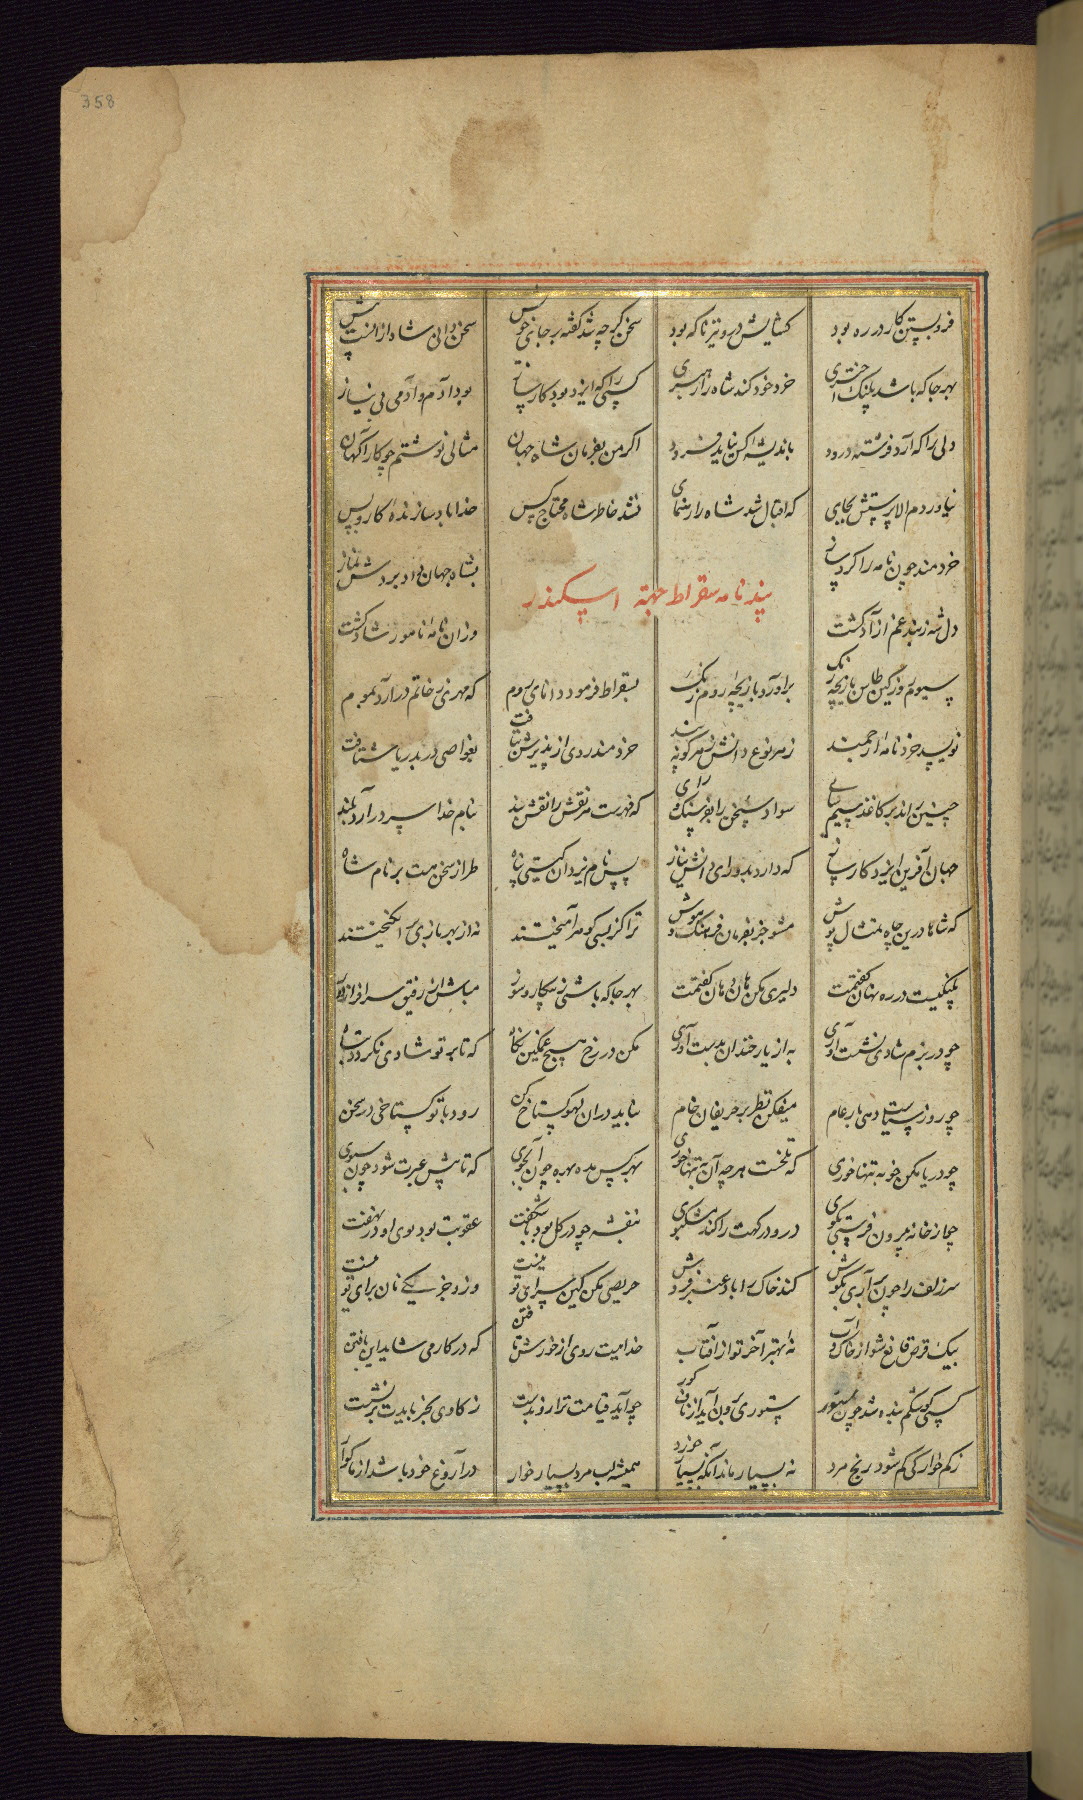 358
فروبستن کار در ره بود کشایش درو نیز ناکه بود سخن کرچه شد کفته بر جای خویش سخن دانی شاه ازانست پیش
بهر جا که باشد پلنک اختری خرد خود کند شاه را رهبری کسی را که ایزد بود کارساز بود از آدم و آدمی بی نیاز
دلی را که آرد فرشته درود باندیشه کس نیاید فرود اکر من بفرمان شاه جهان مثالی نوشتم چو کارآکهان
نیاوردم الا پرستش بجای که اقبال شد شاه را رهنمای نشد خاطر شاه محتاج کس خدا باد سازنده کار و بس
خردمند چون نامه را کرد ساز بشاه جهان داد بردش نماز
دل شه ز بند غم آزاد کشت وزان نامه نامور شاد کشت
پند نامه سقراط جهة اسکندر
سیوم روز کین طاس بازیچه رنک براورد بازیچه روم و زنک بسقراط فرمود دانای روم که مهری ز خاتم درآرد بموم
نویسد خردنامه ارجمند ز هر نوع دانش ز هر کونه پند خردمند روی از پذیرش نتافت بغواصی در بدریا شتافت
چنین راند بر کاغذ سیم سای سواد سخن را بفرهنک و رای که فهرست هر نقش را نقش بند بنام خدا سر درآرد بلند
جهان آفرین ایزد کارساز که دارد بدو رای دانش نیاز پس نام یزدان کیتی پناه طراز سخن هست بر نام شاه
که شاها درین چاه تمثال پوش مشو جز بفرمان فرهنک و هوش ترا کز بسی کوهر آمیختند نه از بهر بازی برانکیختند
پلنکیست در ره نهان کفتمت دلیری مکن هان و هان کفتمت بهر جا که باشی ز پیکار و سور مباش از رفیق سرافراز دور
چو در بزم شادی نشست آوری به از یار خندان بدست آوری مکن در رخ هیچ غمکین نکاه که تا بر تو شادی نکردد تباه
چو روز سیاست دهی بار عام میفکن نظر بر حریفان خام نباید دران لهو کستاخ کن رود با تو کستاخی در سخن
چو دریا مکن خو به تنها خوری که تلخست هر چه آن به تنها خوری بهر کس بده بهره چون آب جوی که تا پیش عبرت شود چون سبوی
چو از خانه بیرون فرستی بکوی در و درکهت را کند مشکبوی بنفشه چو در کل بود ناشکفت عقوبت بود بوی او در نهفت
سر زلف را چون برآری بکوش کند خاک را باد عنبر فروش حریصی مکن کین سرای تو نیست وزو جز یکی نان برای تو نیست
بیک قرص قانع شو از خاک و آب نه بهتر آخر تو از آفتاب خدائیت روی از خورش تافتن که در کار می شاید این یافتن
کسی کو شکم بنده شد چون ستور ستوری برون آید از ناف کور چو آید قیامت ترازو بدست ز کاوی بخر بایدت برنشست
ز کم خوارکی کم شود رنج مرد نه بسیار ماند آنکه بسیار خورد همیشه لب مرد بسیار خوار در آروغ خود باشد از ناکوار